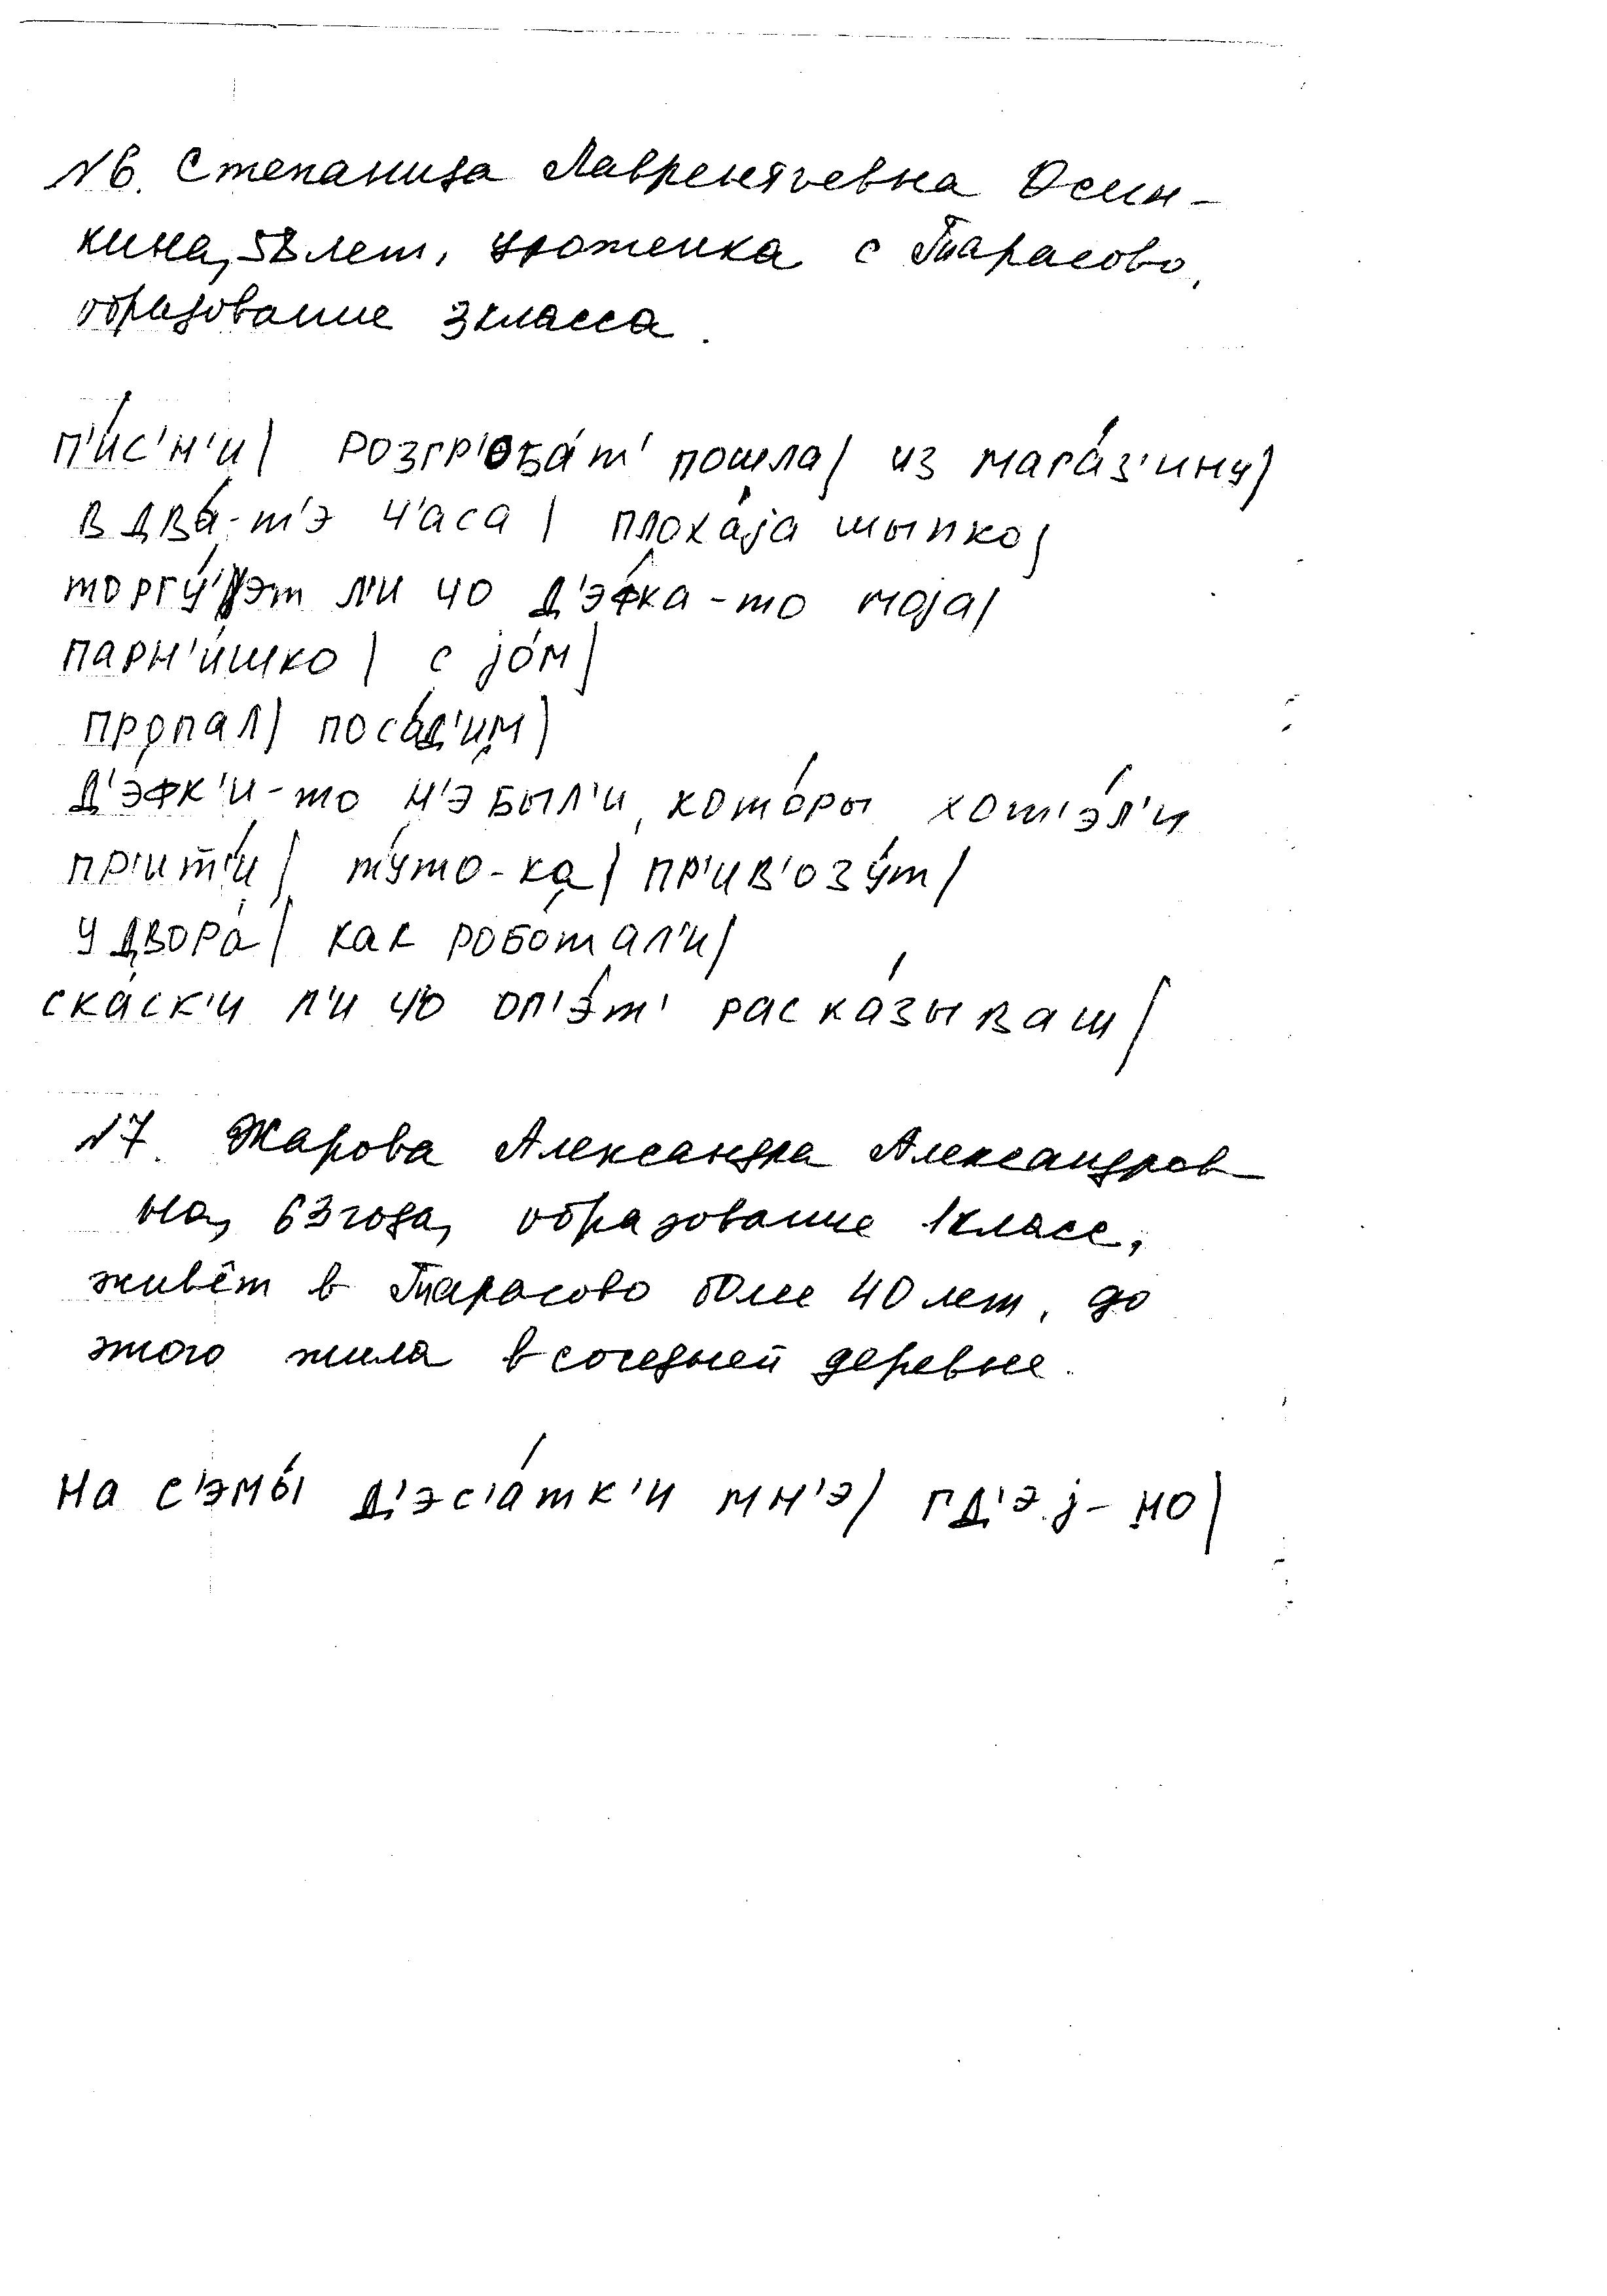 N6. Степанида Лаврентьевна Осин-
кина, 58 лет, уроженка с Тарасово,
образование 3 класса.
п'и́с'н'и| розгр'оба́т' пошла| из мага́з'ину|
в два́-т'э ч'аса| плоха́jа шыпко|
торгу́jэт л'и чо д'э́фка-то моjа|
парн'и́шко| с jо́м|
пропал| поса́д'им|
д'э́фк'и-то н'э был'и, кото́ры хот'э́л'и
пр'ит'и́| ту́то-ка| пр'ив'озу́т|
у двора́| как робо́тал'и|
ска́ск'и л'и ч'о оп'э́т' раска́зываш|
N7. Жарова Александра Александров
на, 63 года, образование 1 класс,
живёт в Тарасово более 40 лет, до
этого жила в соседней деревне.
На с'эмы́ д'эс'а́тк'и мн'э| гд'э j-но|